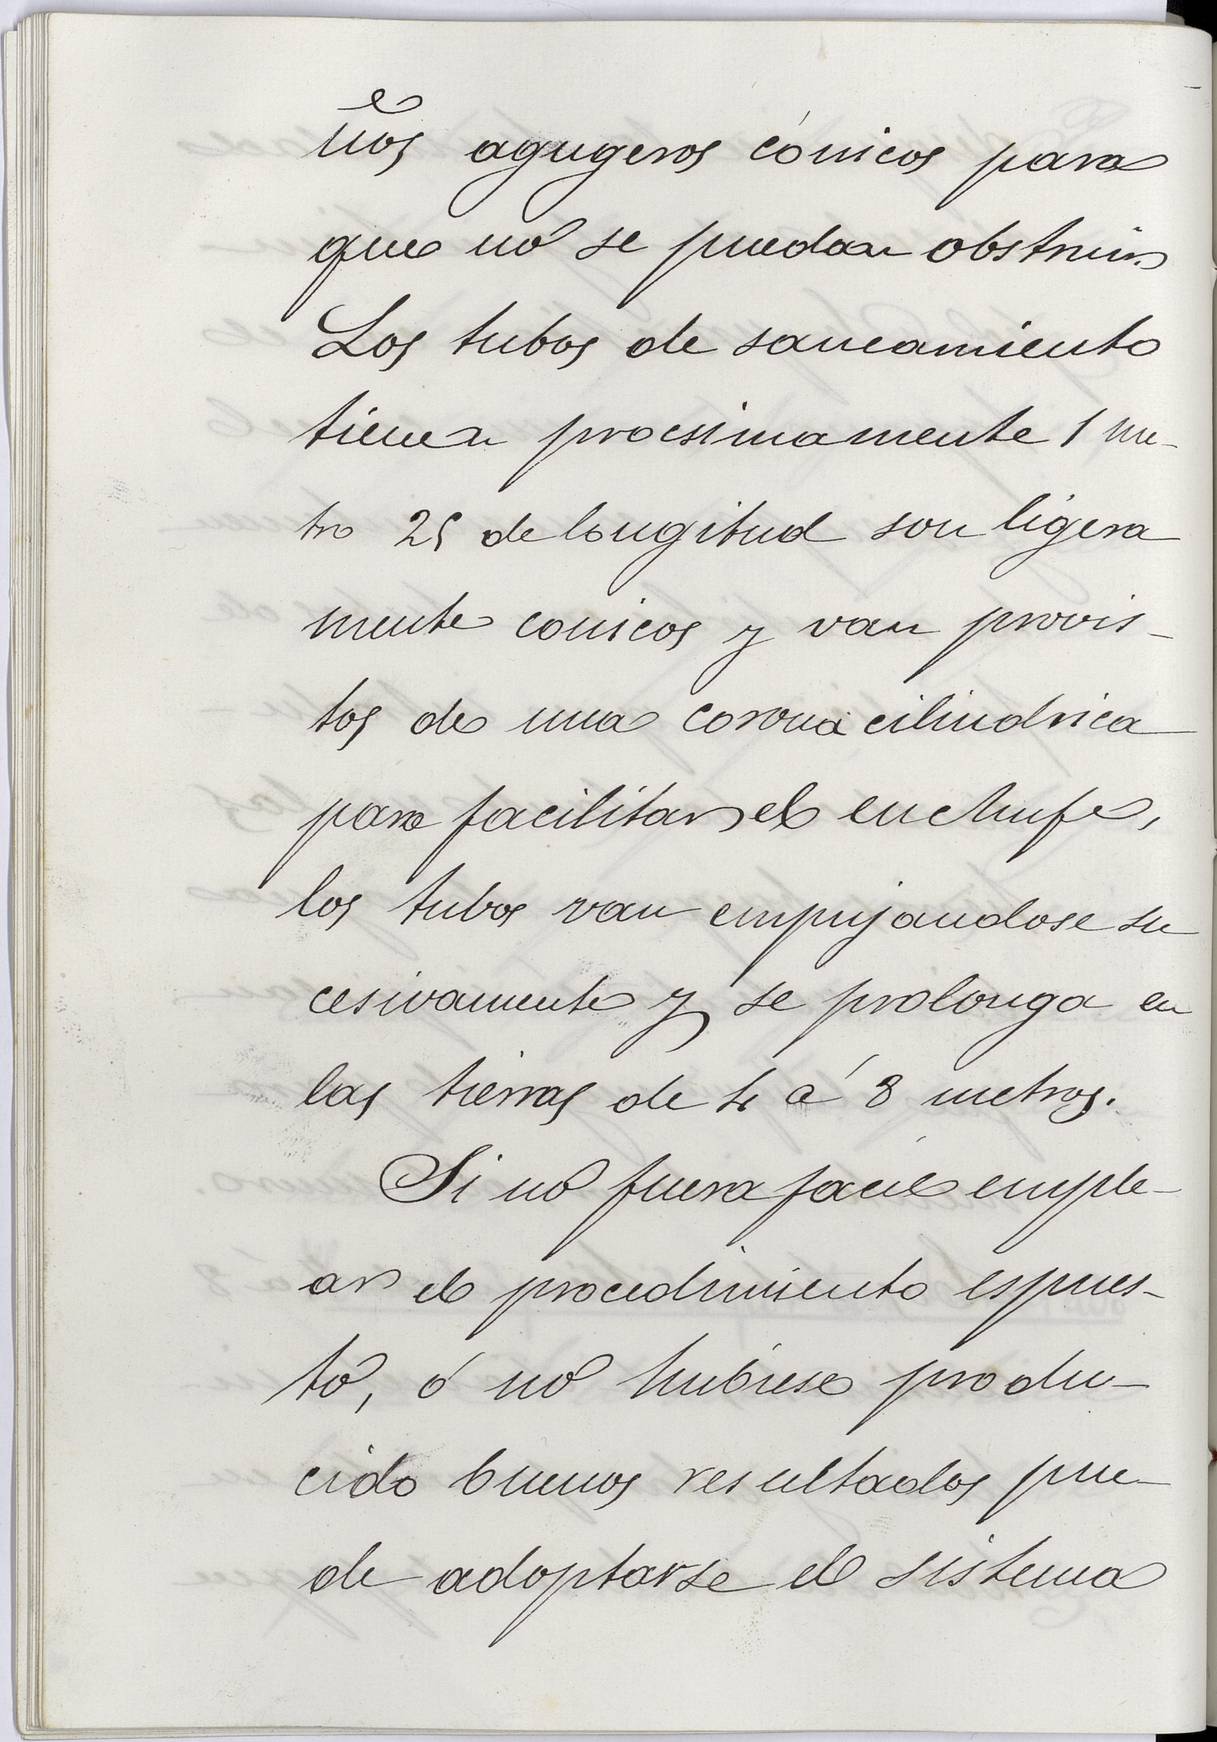 ños agugeros cónicos para
que no se puedan obstruir
Los tubos de saneamiento
tienen procsimamente 1 me-
tro 25 de longitud son ligera
mente conicos y van provis-
tos de una corona cilindrica
para facilitar el enchufe,
los tubos van empujandose su
cesivamente y se prolonga en
las tierras de 4 á 8 metros.
Si no fuera facil emple-
ar el procedimiento espues-
to, ó no hubiese produ-
cido buenos resultados pue-
de adoptarse el sistema